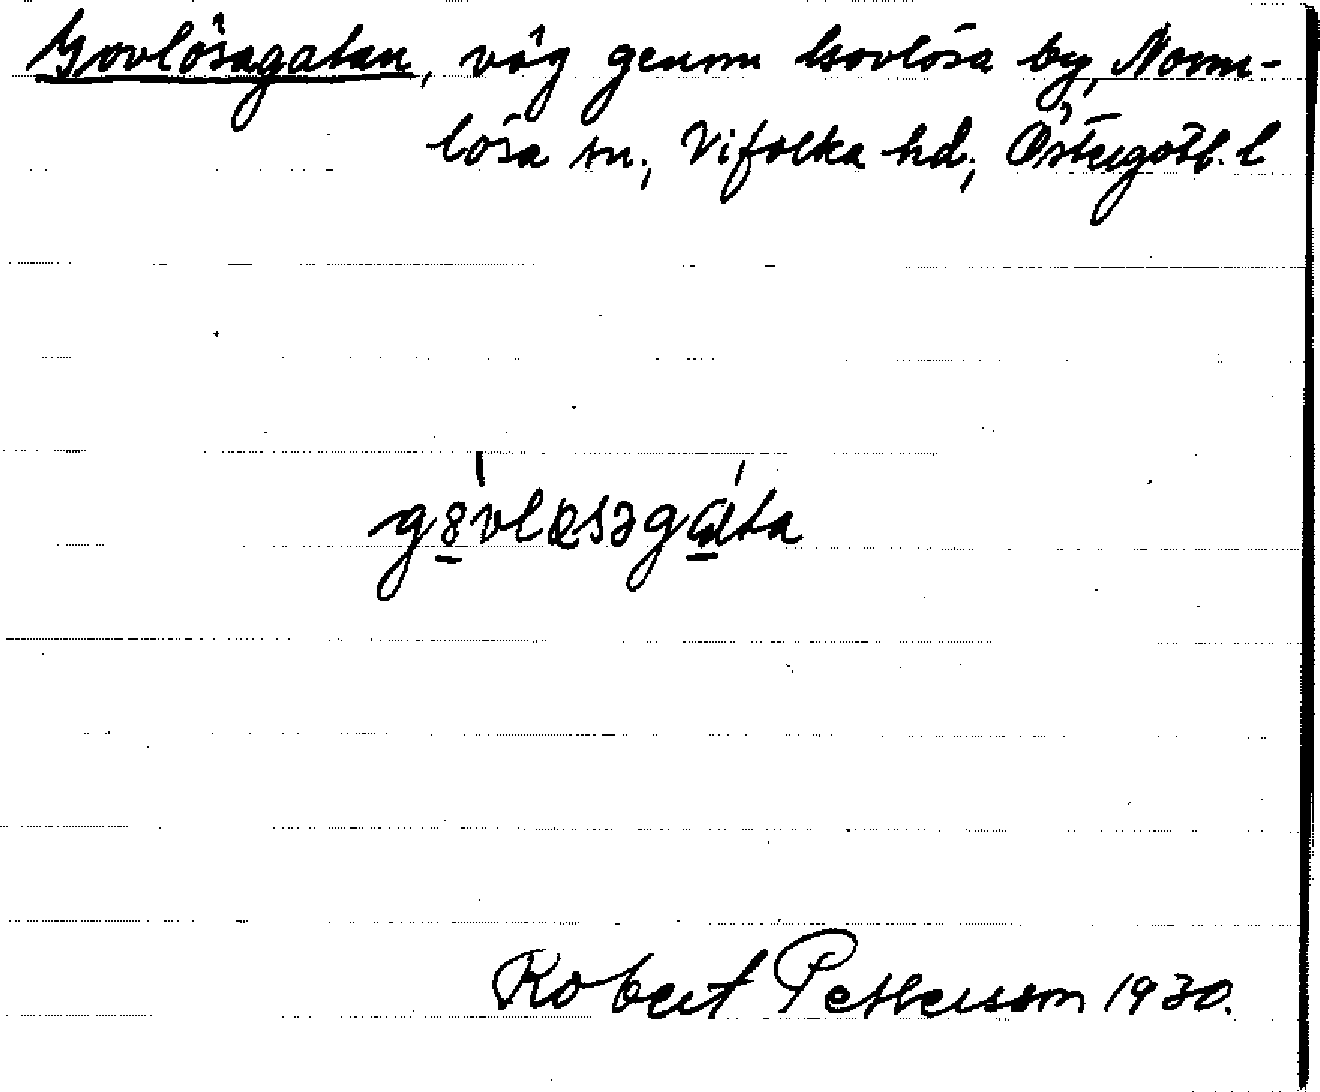 Govlösagatan, väg genom Govlösa by, Norm-
lösa sn, Vifolka hd, Östergötl. l
Robert Pettersson 1930.